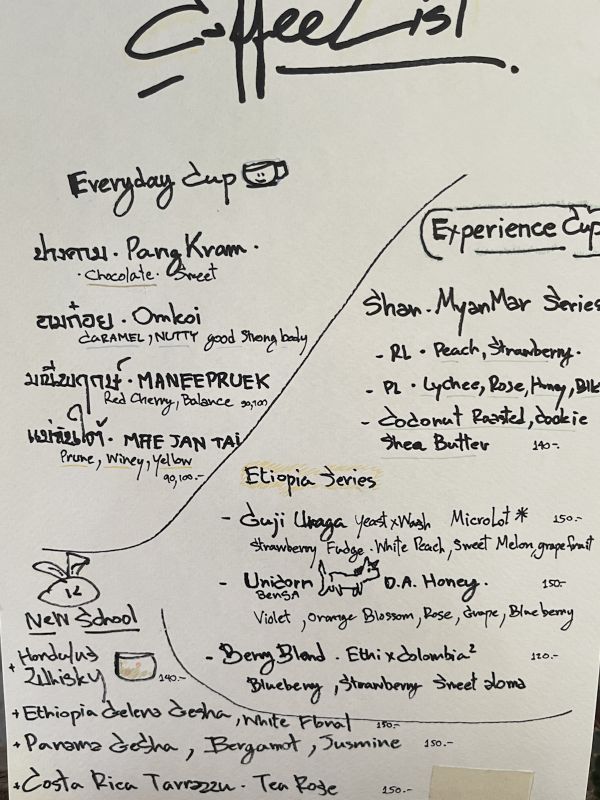 Coffee List
Everyday Cup
ปางคาม · Pang Kram ·
· Chocolate · Sweet
อมก๋อย · Omkoi
CARAMEL, NUTTY good strong body
มณีพฤกษ์ · MANEEPRUEK
Red Cherry, Balance 90,100
แม่จันใต้ · MAE JAN TAI
Prune, Winey, Yellow
90,100.-
Experience Cup
Shan · MyanMar Series
- RL · Peach, Strawberry ·
- PL · Lychee, Rose, Honey, Blk
- Coconut Roasted, Cookie
Shea Butter 140.-
Etiopia Series
- Guji Uraga Yeast x Wash MicroLot * 150.-
Strawberry Fudge · White Peach, Sweet Melon, grapefruit
- Unicorn D.A. Honey · 150.-
BENSA
Violet, Orange Blossom, Rose, Grape, Blueberry
- Berry Blend · Ethi x Colombia² 120.-
Blueberry, Strawberry Sweet aloma
12
New School
+ Hondulus
Whisky 140.-
+ Ethiopia Gelena Gesha, White Floral 150.-
+ Panama Gesha, Bergamot, Jusmine 150.-
+ Costa Rica Tarrazzu · Tea Rose 150.-